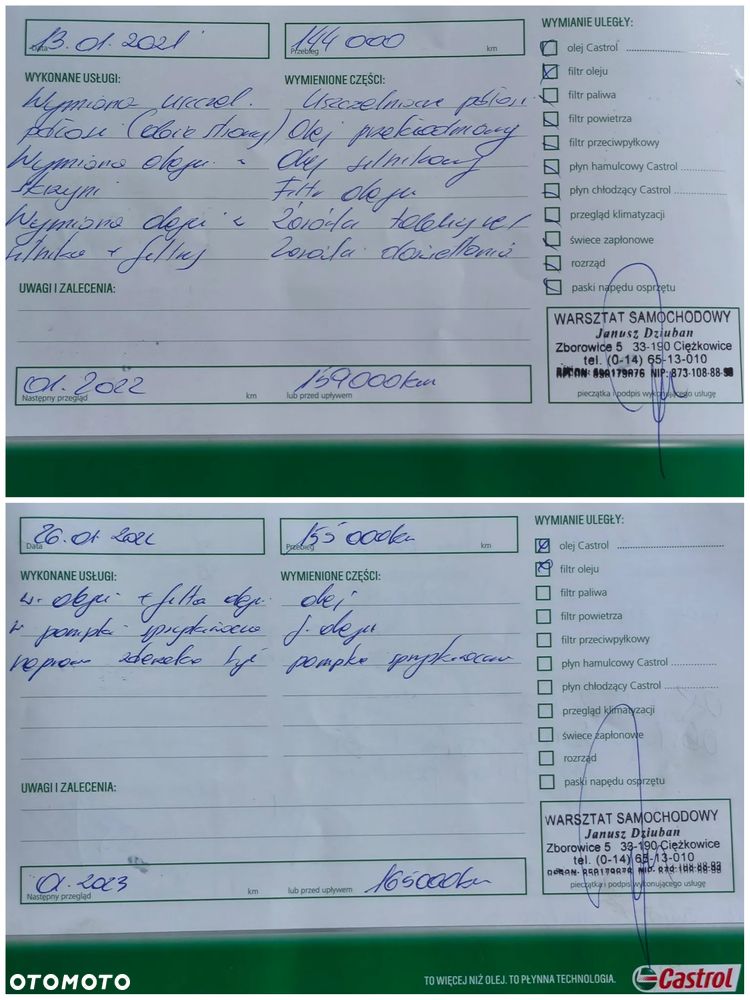 13.01.2021
Data
144 000
Przebieg
km
WYMIANIE ULEGŁY:
olej Castrol
filtr oleju
filtr paliwa
filtr powietrza
filtr przeciwpyłkowy
płyn hamulcowy Castrol
płyn chłodzący Castrol
przegląd klimatyzacji
świece zapłonowe
rozrząd
paski napędu osprzętu
WYKONANE USŁUGI:
Wymiana uszczel.
półosi (obie strony)
Wymiana oleju w
skrzyni
Wymiana oleju w
silniku + filtry
WYMIENIONE CZĘŚCI:
Uszczelniacze półosi
Olej przekładniowy
Olej silnikowy
Filtr oleju
UWAGI I ZALECENIA:
01.2022
Następny przegląd
km
159000km
lub przed upływem
WARSZTAT SAMOCHODOWY
Janusz Dziuban
Zborowice 5 33-190 Ciężkowice
tel. (0-14) 65-13-010
NIP: 873-108-88-98
pieczątka i podpis wykonującego usługę
26.01.2022
Data
155 000km
Przebieg
km
WYMIANIE ULEGŁY:
olej Castrol
filtr oleju
filtr paliwa
filtr powietrza
filtr przeciwpyłkowy
płyn hamulcowy Castrol
płyn chłodzący Castrol
przegląd klimatyzacji
świece zapłonowe
rozrząd
paski napędu osprzętu
WYKONANE USŁUGI:
w. oleju + filtra oleju
w pompki
WYMIENIONE CZĘŚCI:
olej
f. oleju
pompka
UWAGI I ZALECENIA:
01.2023
Następny przegląd
km
165000km
lub przed upływem
WARSZTAT SAMOCHODOWY
Janusz Dziuban
Zborowice 5 33-190 Ciężkowice
tel. (0-14) 65-13-010
pieczątka i podpis wykonującego usługę
OTOMOTO
TO WIĘCEJ NIŻ OLEJ. TO PŁYNNA TECHNOLOGIA.
Castrol